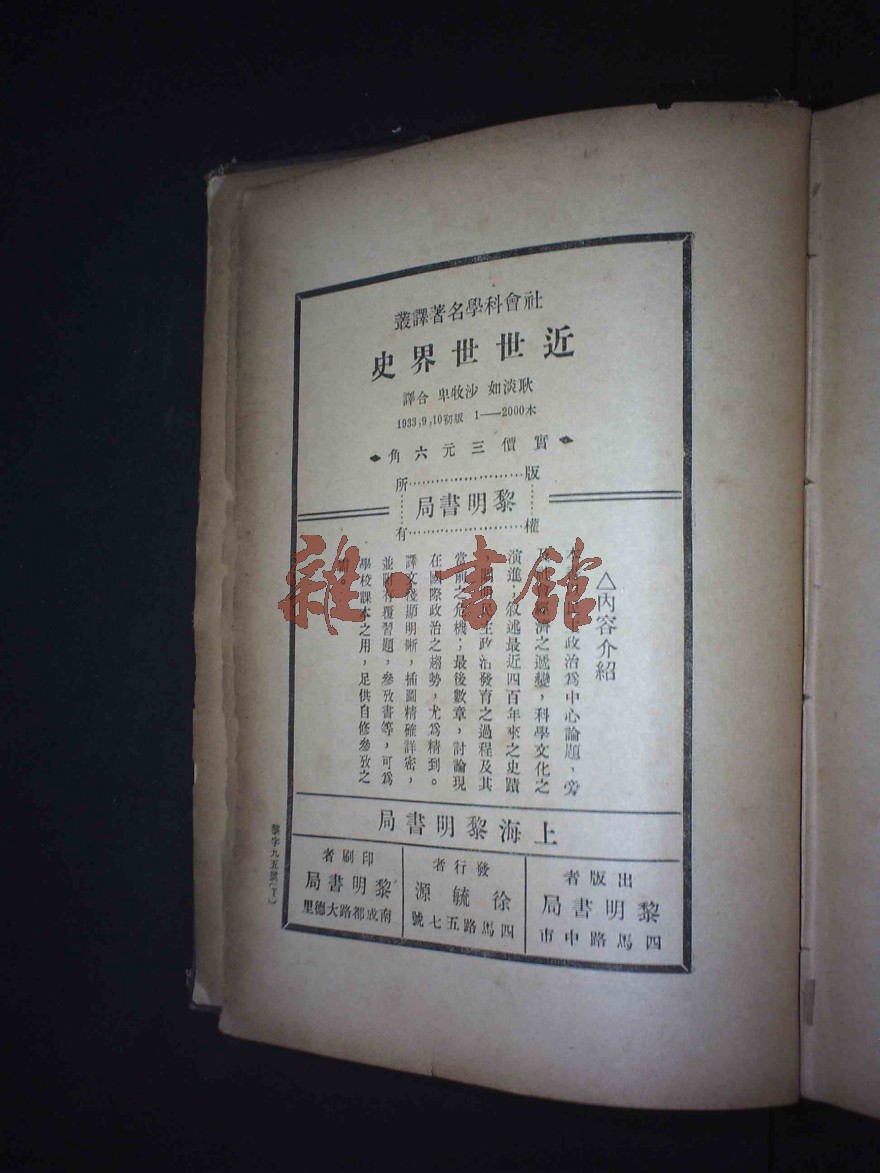 社會科學名著譯叢
近世世界史
耿淡如 沙牧卑 合譯
1933,9,10初版 1——2000本
實價三元六角
版權所有
黎明書局
△內容介紹
政治爲中心論題，旁
及 濟之遞變，科學文化之
演進；叙述最近四百年來之史蹟
主政治發育之過程及其
當前之危機；最後數章，討論現
在國際政治之趨勢，尤爲精到。
譯文淺顯明晰，插圖精確詳密，
並附有覆習題，參攷書等，可爲
學校課本之用，足供自修參攷之
上海黎明書局
出版者
黎明書局
四馬路中市
發行者
徐毓源
四馬路五七號
印刷者
黎明書局
南成都路大德里
黎字九五號(丁)
雜·書館